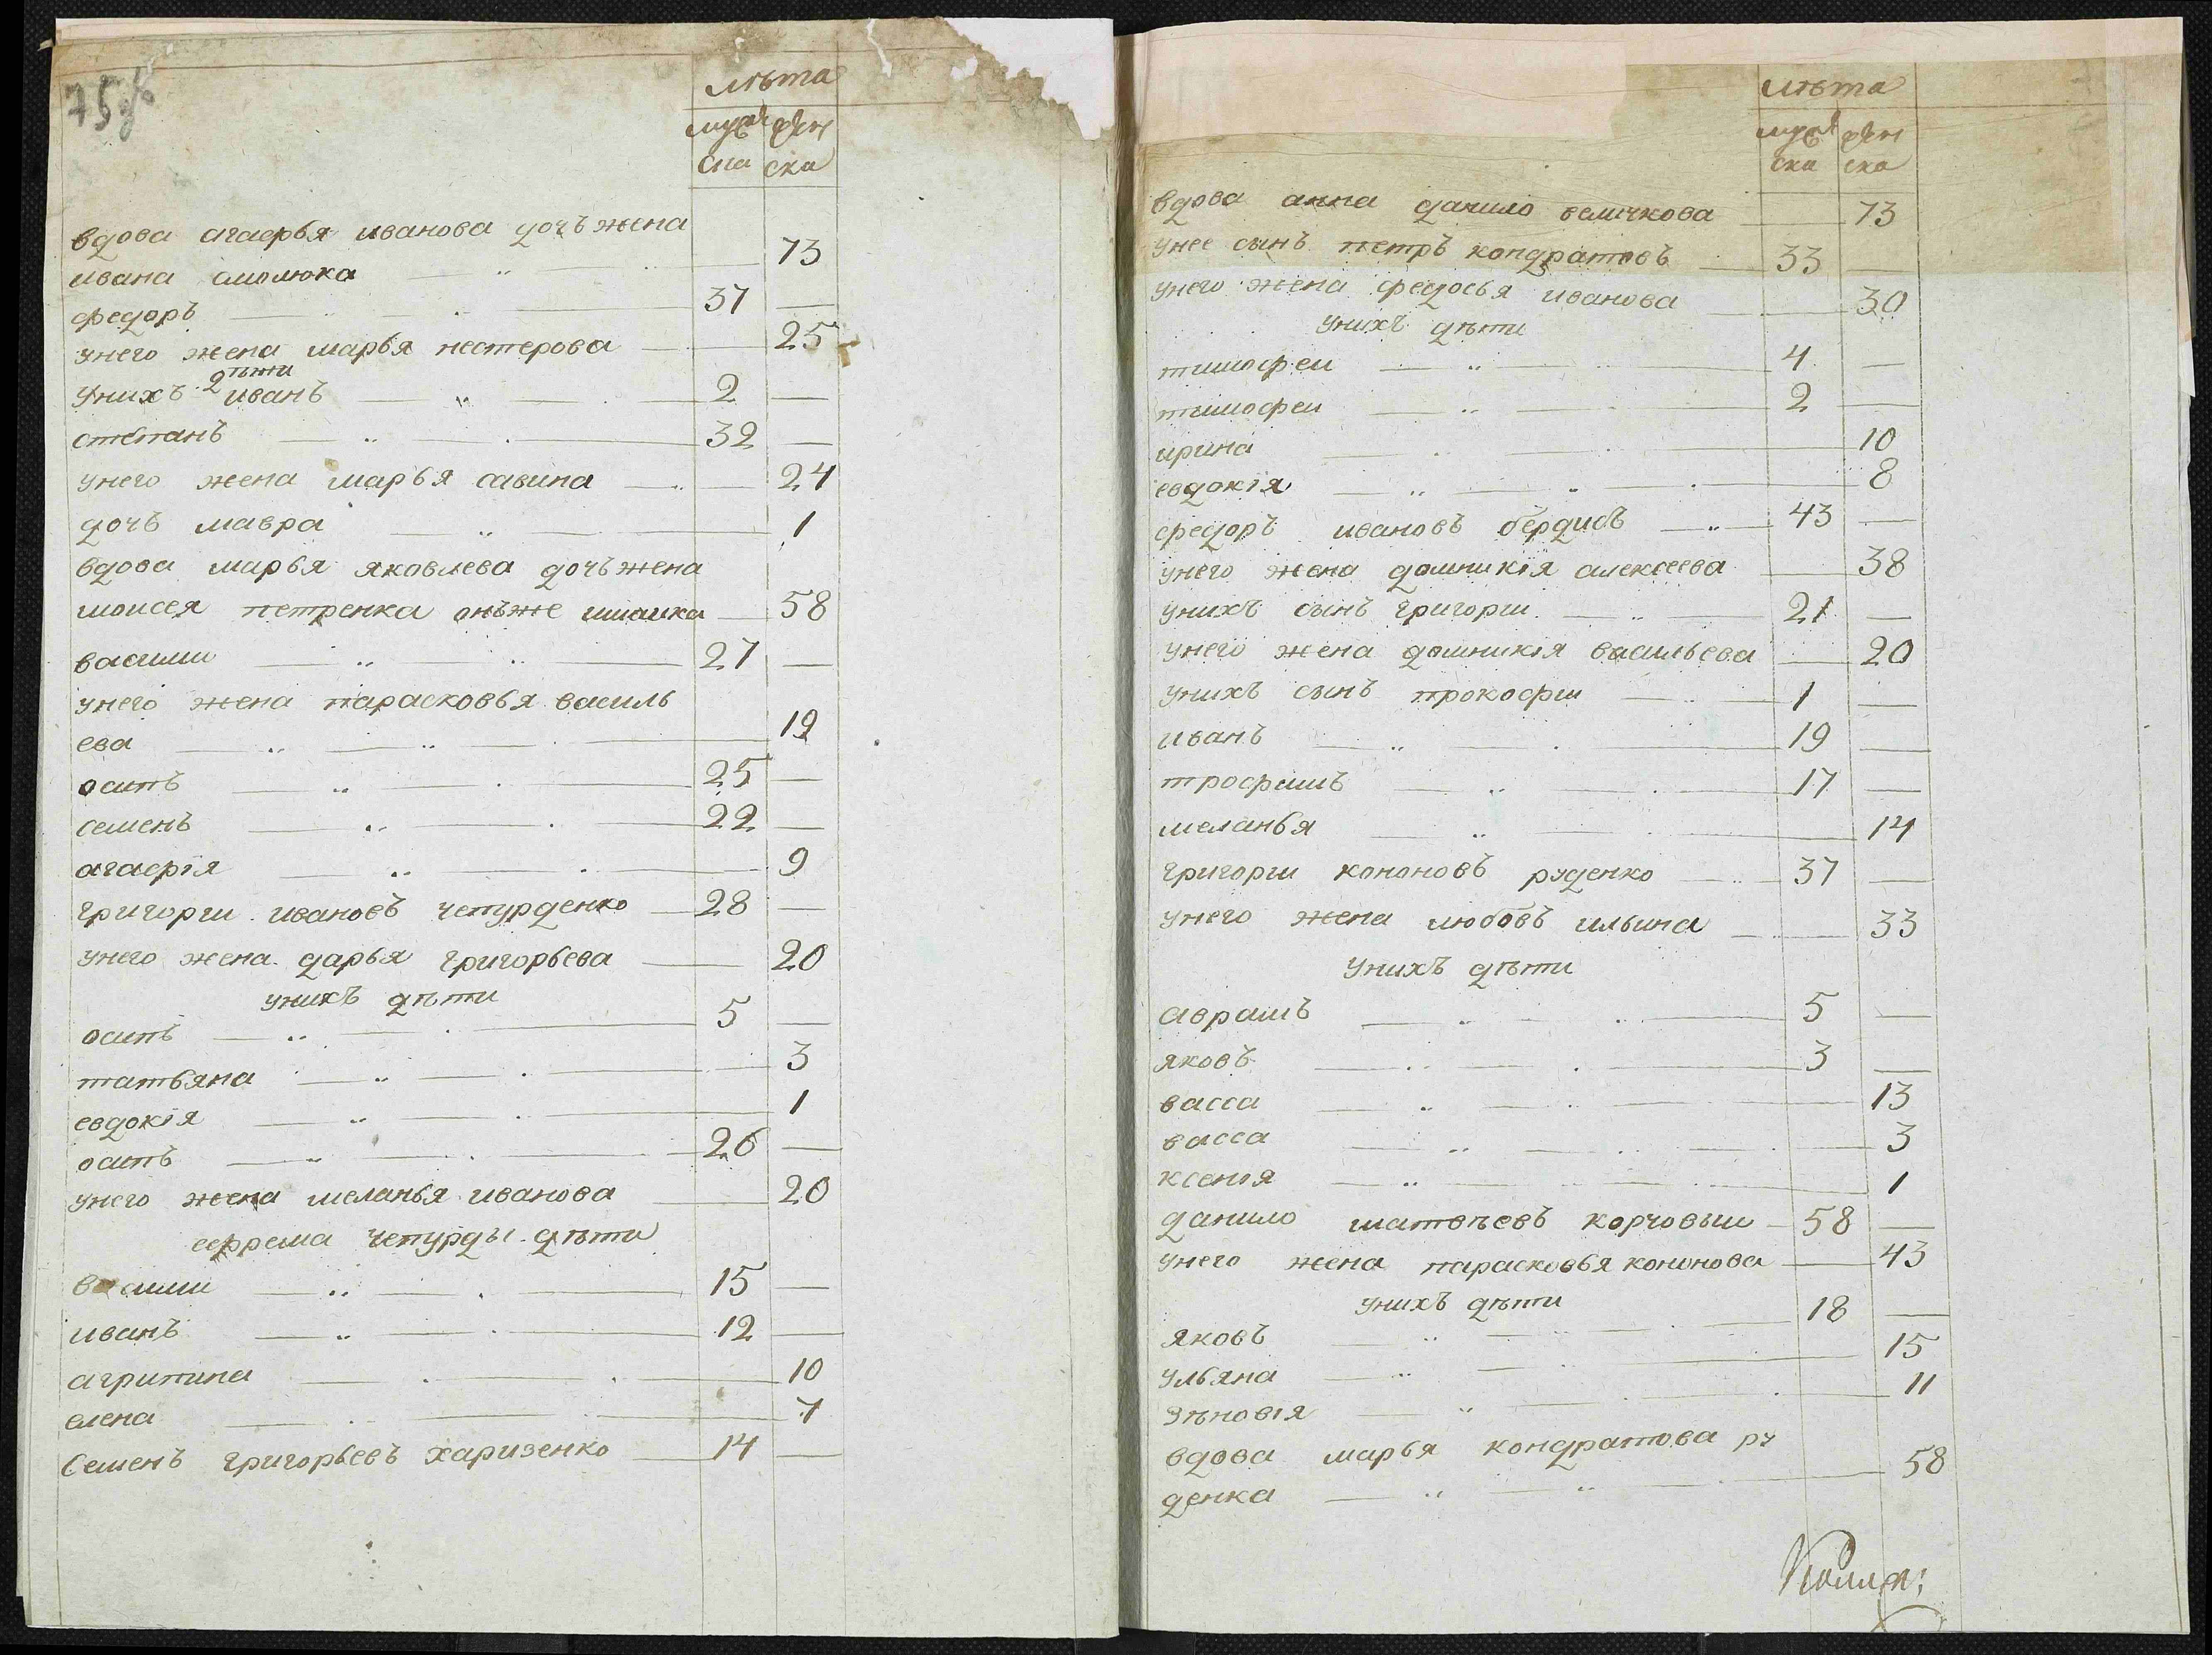 75 об
лѣта
муж жен
ска ска
вдова агафья иванова дочь жена
ивана смолюка 73
федоръ 37 —
унего жена марья нестерова 25
унихъ дѣти иванъ 2 —
степанъ 32 —
унего жена марья савина 24
дочь мавра 1
вдова марья яковлева дочь жена
моисея петренка онъже шмаика 58
васили 27 —
унего жена парасковья василь
ева 19
осипъ 25 —
семенъ 22 —
агафія 9
григори ивановъ чепурденко 28 —
унего жена дарья григорьева 20
унихъ дѣти
осипъ 5 —
татьяна 3
евдокія 1
осипъ 26 —
унего жена меланья иванова 20
ефрема чепурды дѣти
васили 15 —
иванъ 12 —
агрипина 10
елена 7
семенъ григорьевъ харизенко 14 —
лѣта
муж жен
ска ска
вдова анна данило величкова 73
унее сынъ петръ кондратовъ 33 —
унего жена федосья иванова 30
унихъ дѣти
тимофеи 4 —
тимофеи 2 —
ирина 10
евдокія 8
федоръ ивановъ бердисъ 43 —
унего жена домникія алексеева 38
унихъ сынъ григори 21 —
унего жена домникія васильева 20
унихъ сынъ прокофи 1 —
иванъ 19 —
трофимъ 17 —
меланья 14
григори кононовъ руденко 37 —
унего жена любовъ ильина 33
унихъ дѣти
аврамъ 5 —
яковъ 3 —
васса 13
васса 3
ксенія 1
данило матвѣевъ корчовыи 58 —
унего жена парасковья кононова 43
унихъ дѣти
яковъ 18 —
ульяна 15
зѣновія 11
вдова марья кондратова ру
денка 58